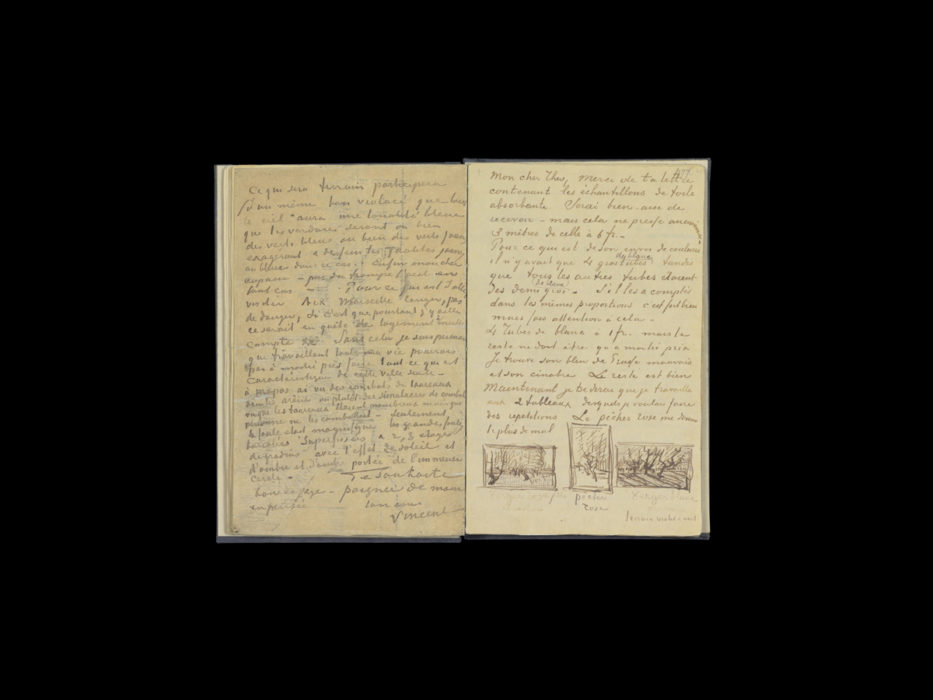 Ce qui sera terrain participera
d'un même ton violacé que tout
le ciel aura une tonalité bleue
que les verdures seront ou bien
des verts bleus ou bien des verts jaunes
exagérant à dessein les qualités jaunes
ou bleues dans ce cas. Enfin mon cher
copain – pas du trompe l'œil en
tout cas –
Pour ce qui est d'aller
visiter Aix Marseille Tanger, pas
de danger, si c'est que pourtant j'y aille
ce serait en quête de logement meilleur
compte &c. Sans cela je sens puisque
que travaillant toute ma vie pourrais
pas à moitié près faire tout ce qui est
caractéristique de cette ville seule –
à propos ai vu des combats de taureaux
dans les arènes ou plutôt des simulacres de combat
vu que les taureaux étaient nombreux mais que
personne ne les combattait – Seulement
la foule était magnifique les grandes foules
bariolées superposées à 2, 3 étages
de gradins avec l'effet de soleil et
d'ombre et d'ombre portée de l'immense
cercle –
Te souhaite
bon voyage – poignée de main
en pensée ton ami
Vincent
Mon cher Theo, merci de ta lettre
contenant les échantillons de toile
absorbante Serai bien aise de
recevoir – mais cela ne presse aucun
3 mètres de celle à 6 fr. –
Pour ce qui est de son envoi de couleurs
il n'y avait que 4 gros tubes du blanc tandis
que tous les autres tubes étaient
des demi gros – S'il les a comptés
dans les mêmes proportions c'est fort bien
mais fais attention à cela –
4 Tubes de blanc à 1 fr. mais le
reste ne doit être qu'à moitié prix
Je trouve son bleu de Prusse mauvais
et son cinabre Le reste est bien
Maintenant je te dirai que je travaille
aux 2 tableaux desquels je voulais faire
des répétitions Le pêcher rose me donne
le plus de mal
pêcher
rose
Verger blanc